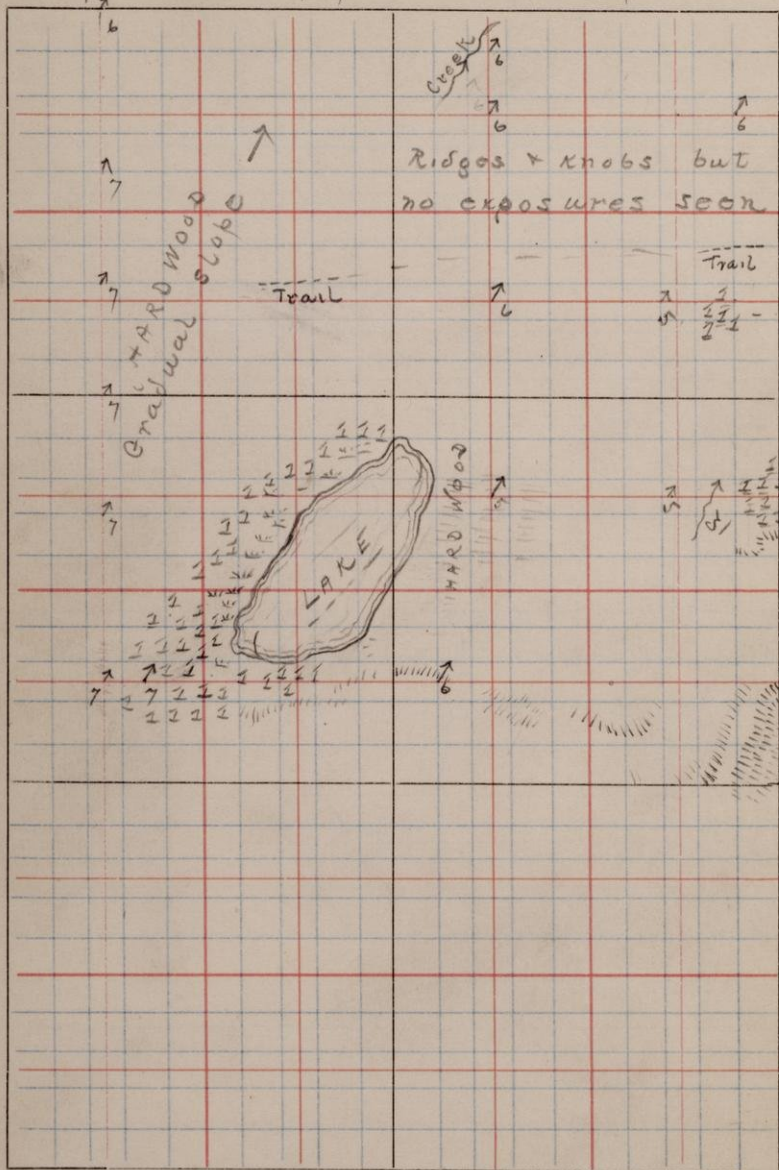 6
Creek
6
6
6
Ridges & Knobs but
no exposures seen
7
HARD WOOD
Gradual slope
Trail
Trail
7
6
5
7
HARD WOOD
7
5
5
LAKE
7
7
6